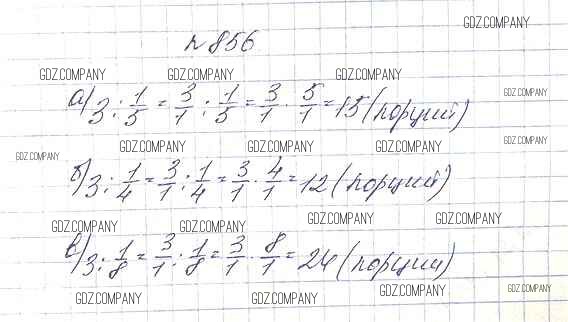 GDZ.COMPANY
n 856
GDZ.COMPANY GDZ.COMPANY GDZ.COMPANY
а) 3 : 1/5 = 3/1 : 1/5 = 3/1 · 5/1 = 15 (порций)
GDZ.COMPANY
GDZ.COMPANY GDZ.COMPANY GDZ.COMPANY
GDZ.COMPANY
б) 3 : 1/4 = 3/1 : 1/4 = 3/1 · 4/1 = 12 (порций)
GDZ.COMPANY
GDZ.COMPANY GDZ.COMPANY GDZ.COMPANY GDZ.COMPANY
в) 3 : 1/8 = 3/1 : 1/8 = 3/1 · 8/1 = 24 (порций)
GDZ.COMPANY GDZ.COMPANY GDZ.COMPANY GDZ.COMPANY